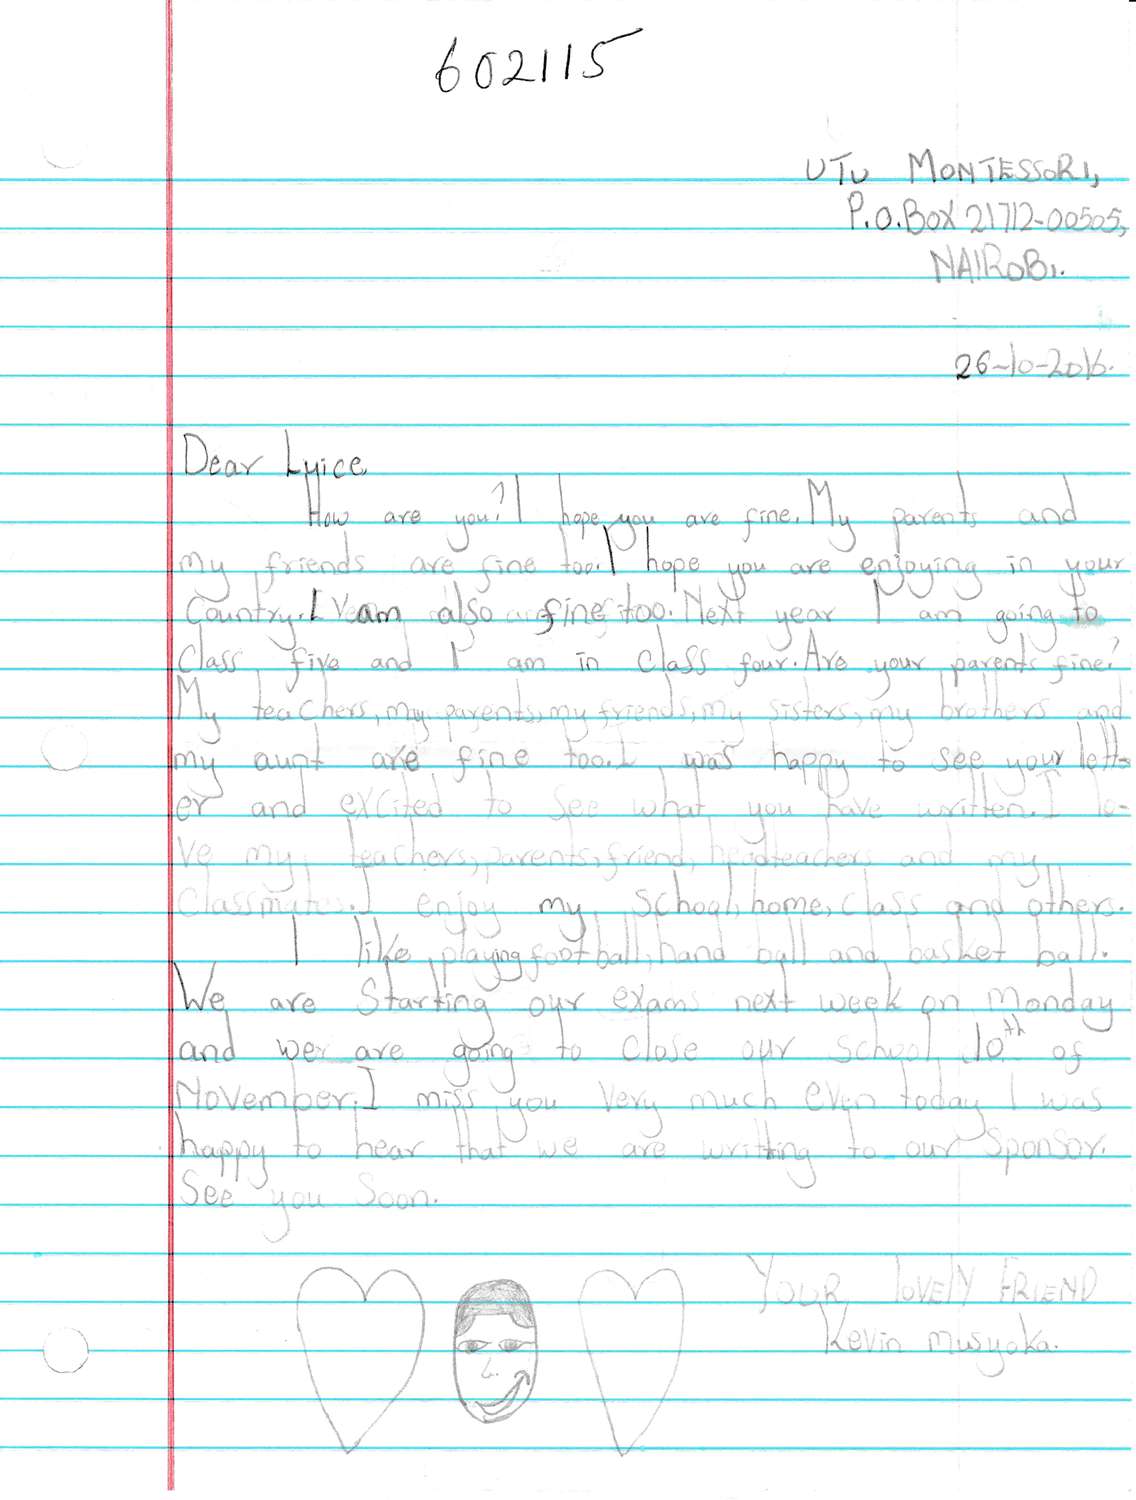 602115
UTU MONTESSORI,
P.O.BOX 21712-00505,
NAIROBI.
26-10-2016.
Dear Lyice,
How are you? I hope you are fine. My parents and
my friends are fine too. I hope you are enjoying in your
Country. I am also fine too. Next year I am going to
Class five and I am in Class four. Are your parents fine?
My teachers, my parents, my friends, my sisters, my brothers and
my aunt are fine too. I was happy to see your lett-
er and excited to see what you have written. I lo-
ve my teachers, parents, friend, headteachers and my
Classmates. I enjoy my School, home, class and others.
I like playing football, hand ball and basket ball.
We are Starting our exams next week on Monday
and we are going to Close our School 10th of
November. I miss you very much even today I was
happy to hear that we are writting to our Sponsor.
See you Soon.
YOUR LOVELY FRIEND
Kevin Musyoka.